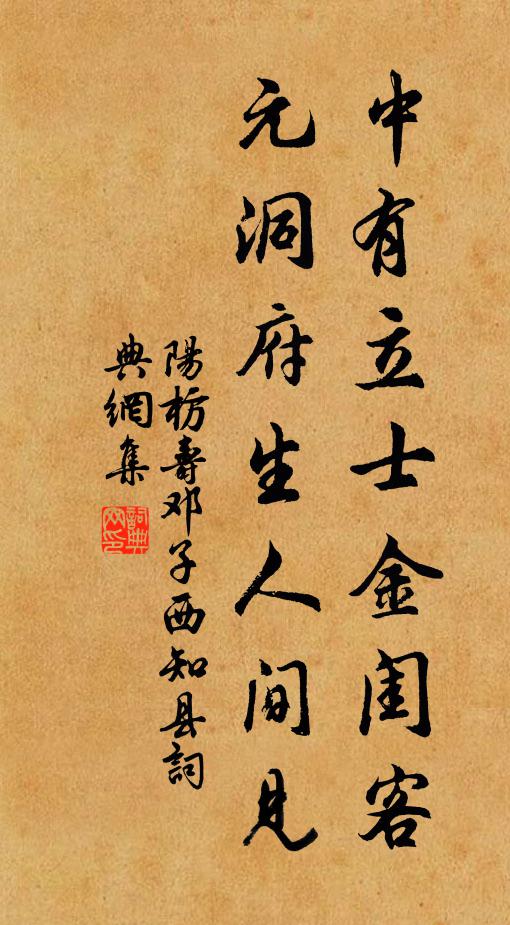 中有立士金闺客
元洞府生人间見
陽枋壽邓子西知县詞
典網集
詞典網印